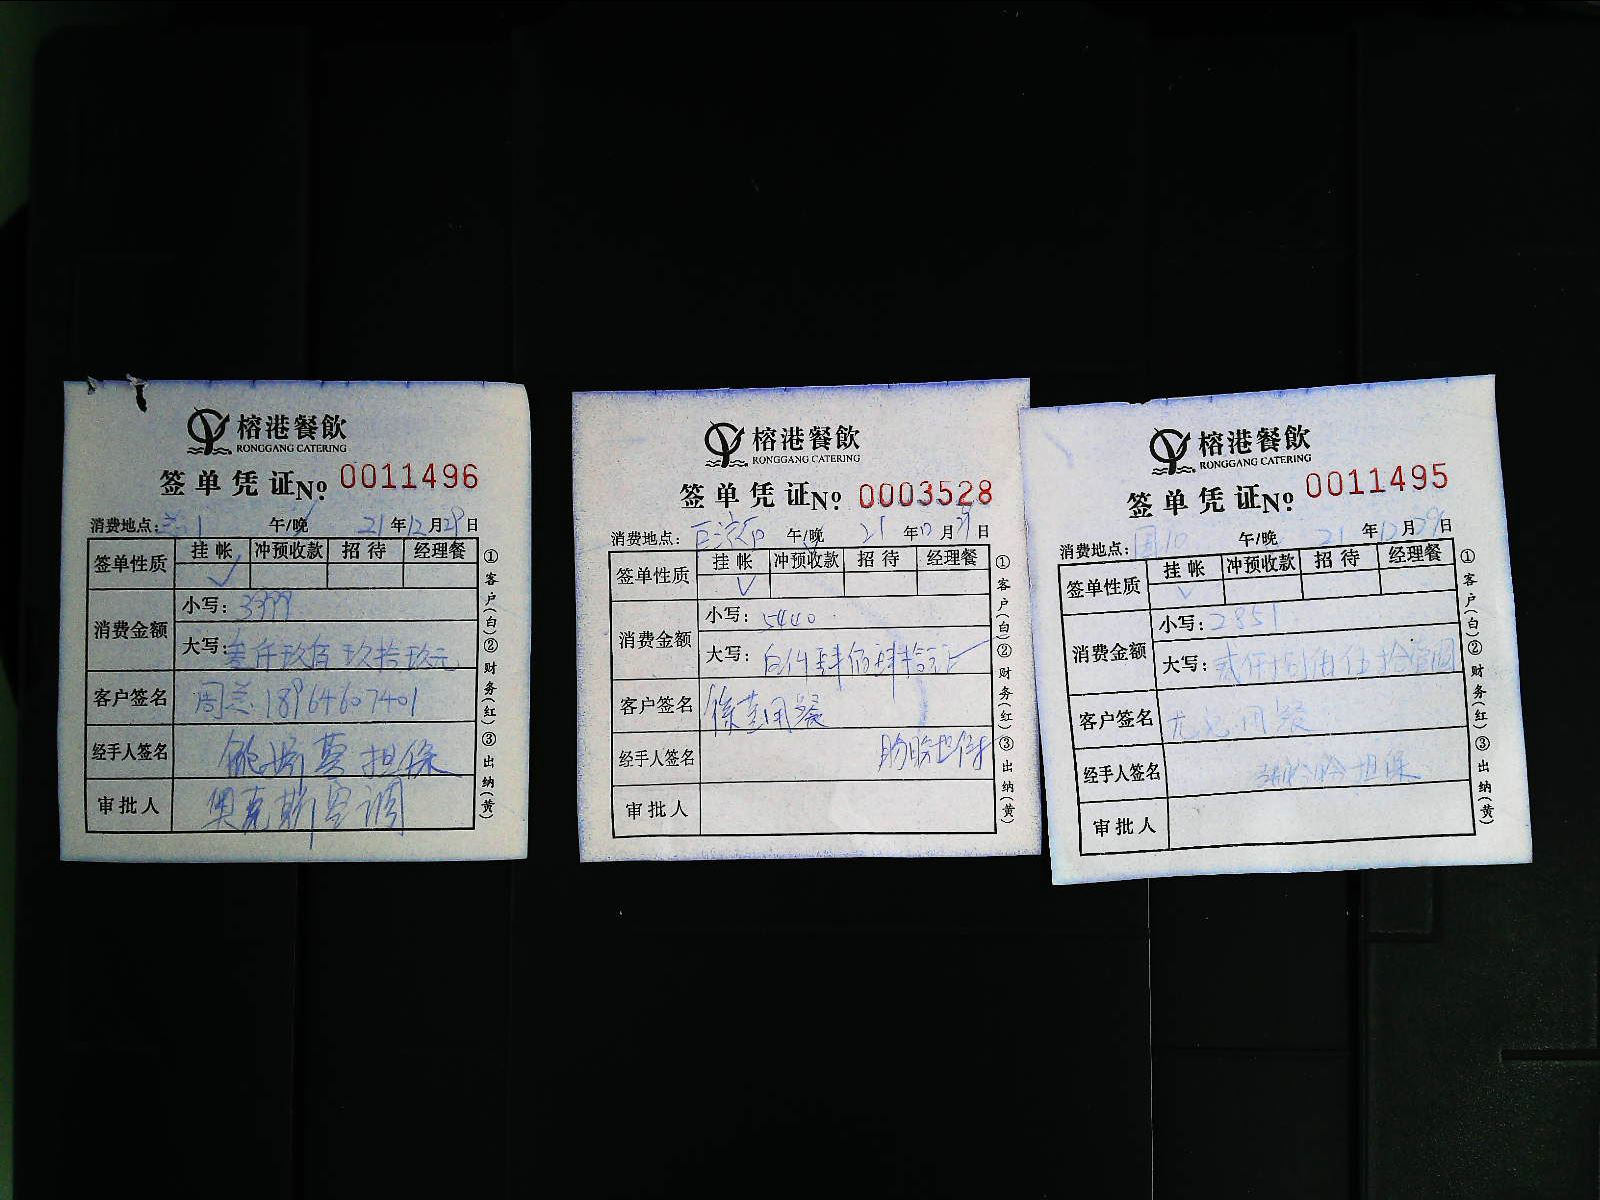 榕港餐飲
RONGGANG CATERING
签单凭证 No 0011496
消费地点: 兰1 午/晚 21年12月29日
签单性质 挂帐 冲预收款 招待 经理餐
✓
消费金额 小写: 3999
大写: 叁仟玖佰玖拾玖元
客户签名 周兰 18964607401
经手人签名 担保
审批人 奥克斯空调
①客户(白)②财务(红)③出纳(黄)
榕港餐飲
RONGGANG CATERING
签单凭证 No 0003528
消费地点: 午/晚 21年12月29日
签单性质 挂帐 冲预收款 招待 经理餐
✓
消费金额 小写: 5440
大写: 伍仟肆佰肆拾元正
客户签名 徐 用餐
经手人签名 盼盼担保
审批人
①客户(白)②财务(红)③出纳(黄)
榕港餐飲
RONGGANG CATERING
签单凭证 No 0011495
消费地点: 10 午/晚 21年12月29日
签单性质 挂帐 冲预收款 招待 经理餐
✓
消费金额 小写: 2851
大写: 贰仟捌佰伍拾壹圆
客户签名 用餐
经手人签名 担保
审批人
①客户(白)②财务(红)③出纳(黄)